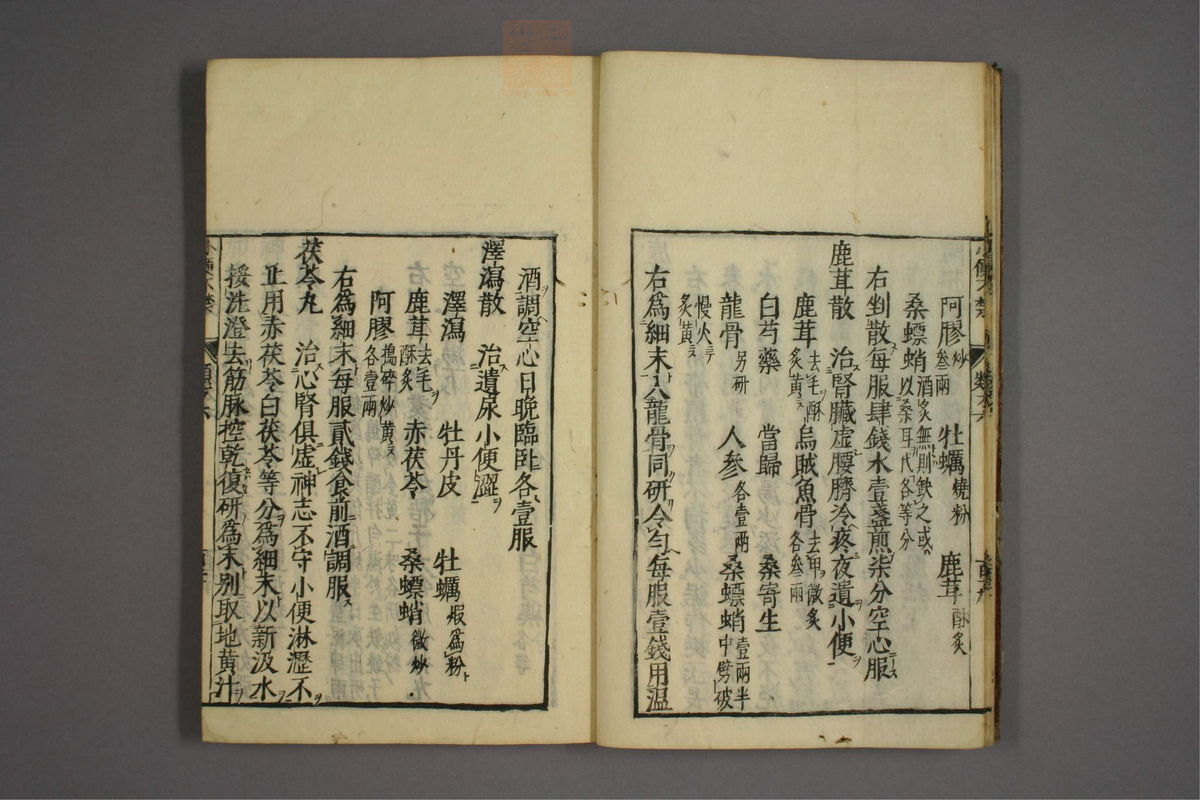 阿膠炒叁兩 牡蠣燒粉 鹿茸酥炙
桑螵蛸酒炙無則缺之或以桑耳代各等分
右剉散每服肆錢水壹盞煎柒分空心服
鹿茸散 治腎臟虚腰臍冷疼夜遺小便
鹿茸去毛酥炙黄 烏賊魚骨去甲微炙各叁兩
白芍藥 當歸 桑寄生
龍骨另研 人參各壹兩 桑螵蛸壹兩半中劈破
慢火炙黄
右爲細末入龍骨同研令匀每服壹錢用温
酒調空心日晚臨卧各壹服
澤瀉散 治遺尿小便澀
澤瀉 牡丹皮 牡蠣煅爲粉
鹿茸去毛酥炙 赤茯苓 桑螵蛸微炒
阿膠搗碎炒黄各壹兩
右爲細末每服貳錢食前酒調服
茯苓丸 治心腎俱虚神志不守小便淋瀝不
止用赤茯苓白茯苓等分爲細末以新汲水
挼洗澄去筋脉控乾復研爲末别取地黄汁